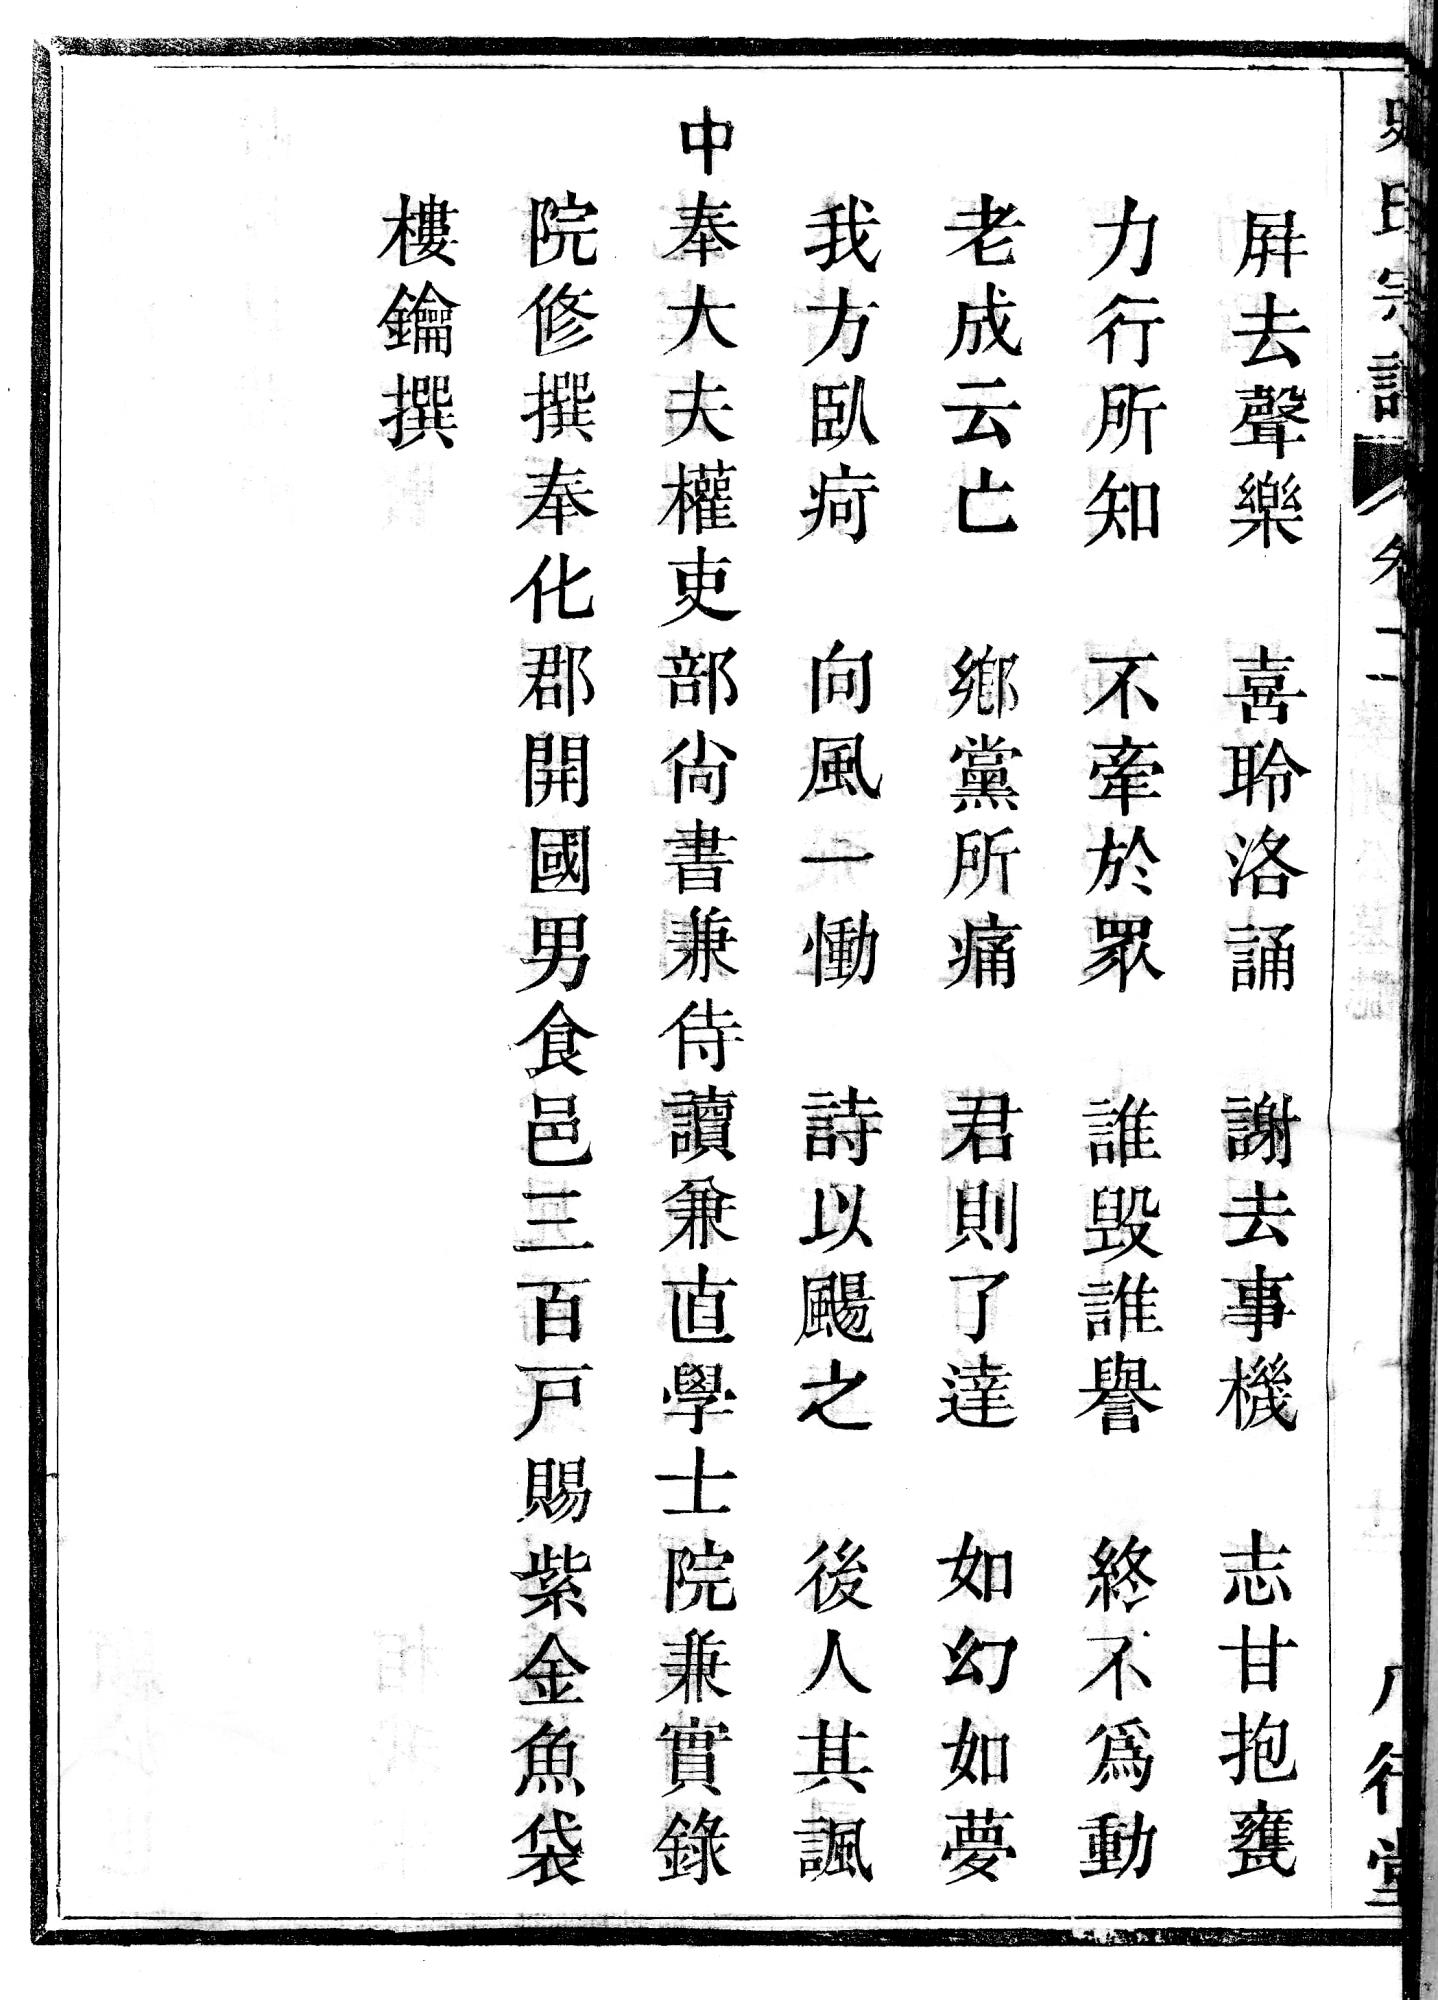 史氏宗譜 卷二 八行堂
屛去聲樂　喜聆洛誦　謝去事機　志甘抱甕
力行所知　不牽於眾　誰毁誰譽　終不爲動
老成云亡　鄉黨所痛　君則了達　如幻如夢
我方臥疴　向風一慟　詩以颺之　後人其諷
中奉大夫權吏部尙書兼侍讀兼直學士院兼實錄
院修撰奉化郡開國男食邑三百戸賜紫金魚袋
樓鑰撰